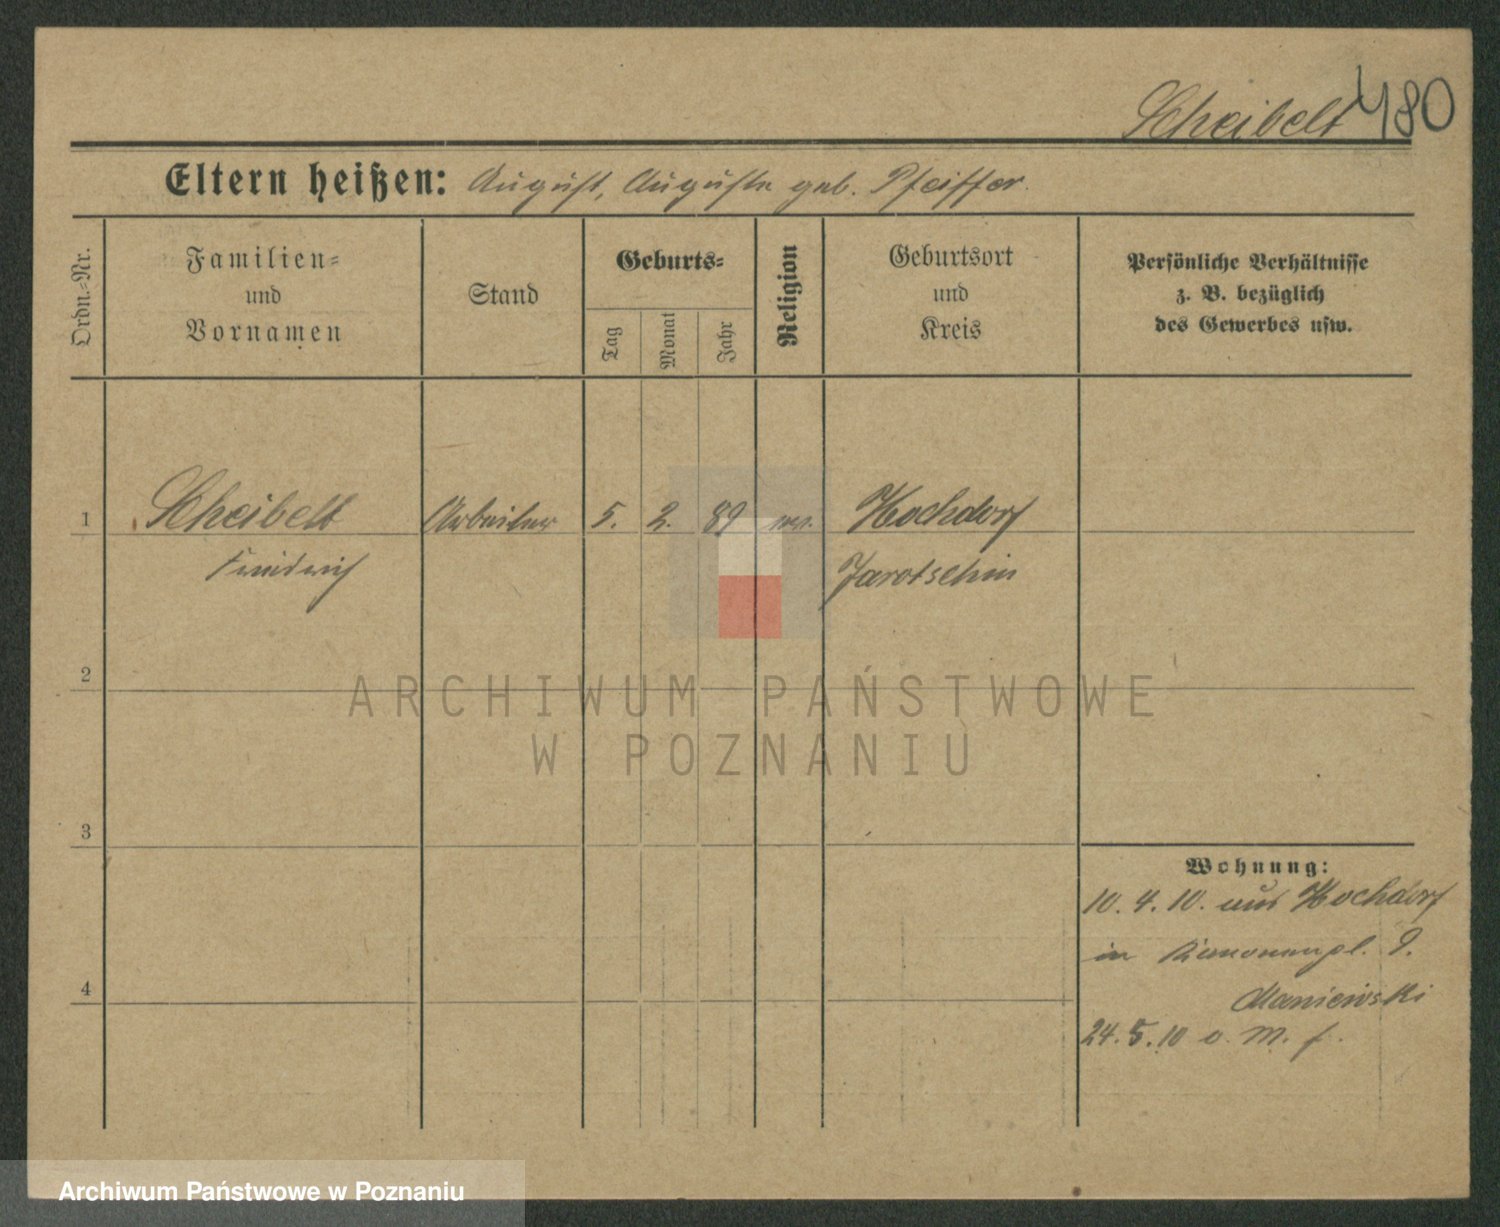 Scheibelt 480
Eltern heißen: August, Auguste geb. Pfeiffer.
Ordn.-Nr.
Familien-
und
Vornamen
Stand
Geburts-
Tag
Monat
Jahr
Religion
Geburtsort
und
Kreis
Persönliche Verhältnisse
z. B. bezüglich
des Gewerbes usw.
1 Scheibelt Arbeiter 5. 2. 89 ev. Hochdorf
Friedrich Jarotschin
2
ARCHIWUM PAŃSTWOWE
W POZNANIU
3
Wohnung:
10. 4. 10. aus Hochdorf
in Kanonenpl. 9.
Maniewski
4
24. 5. 10 o. M. f.
Archiwum Państwowe w Poznaniu